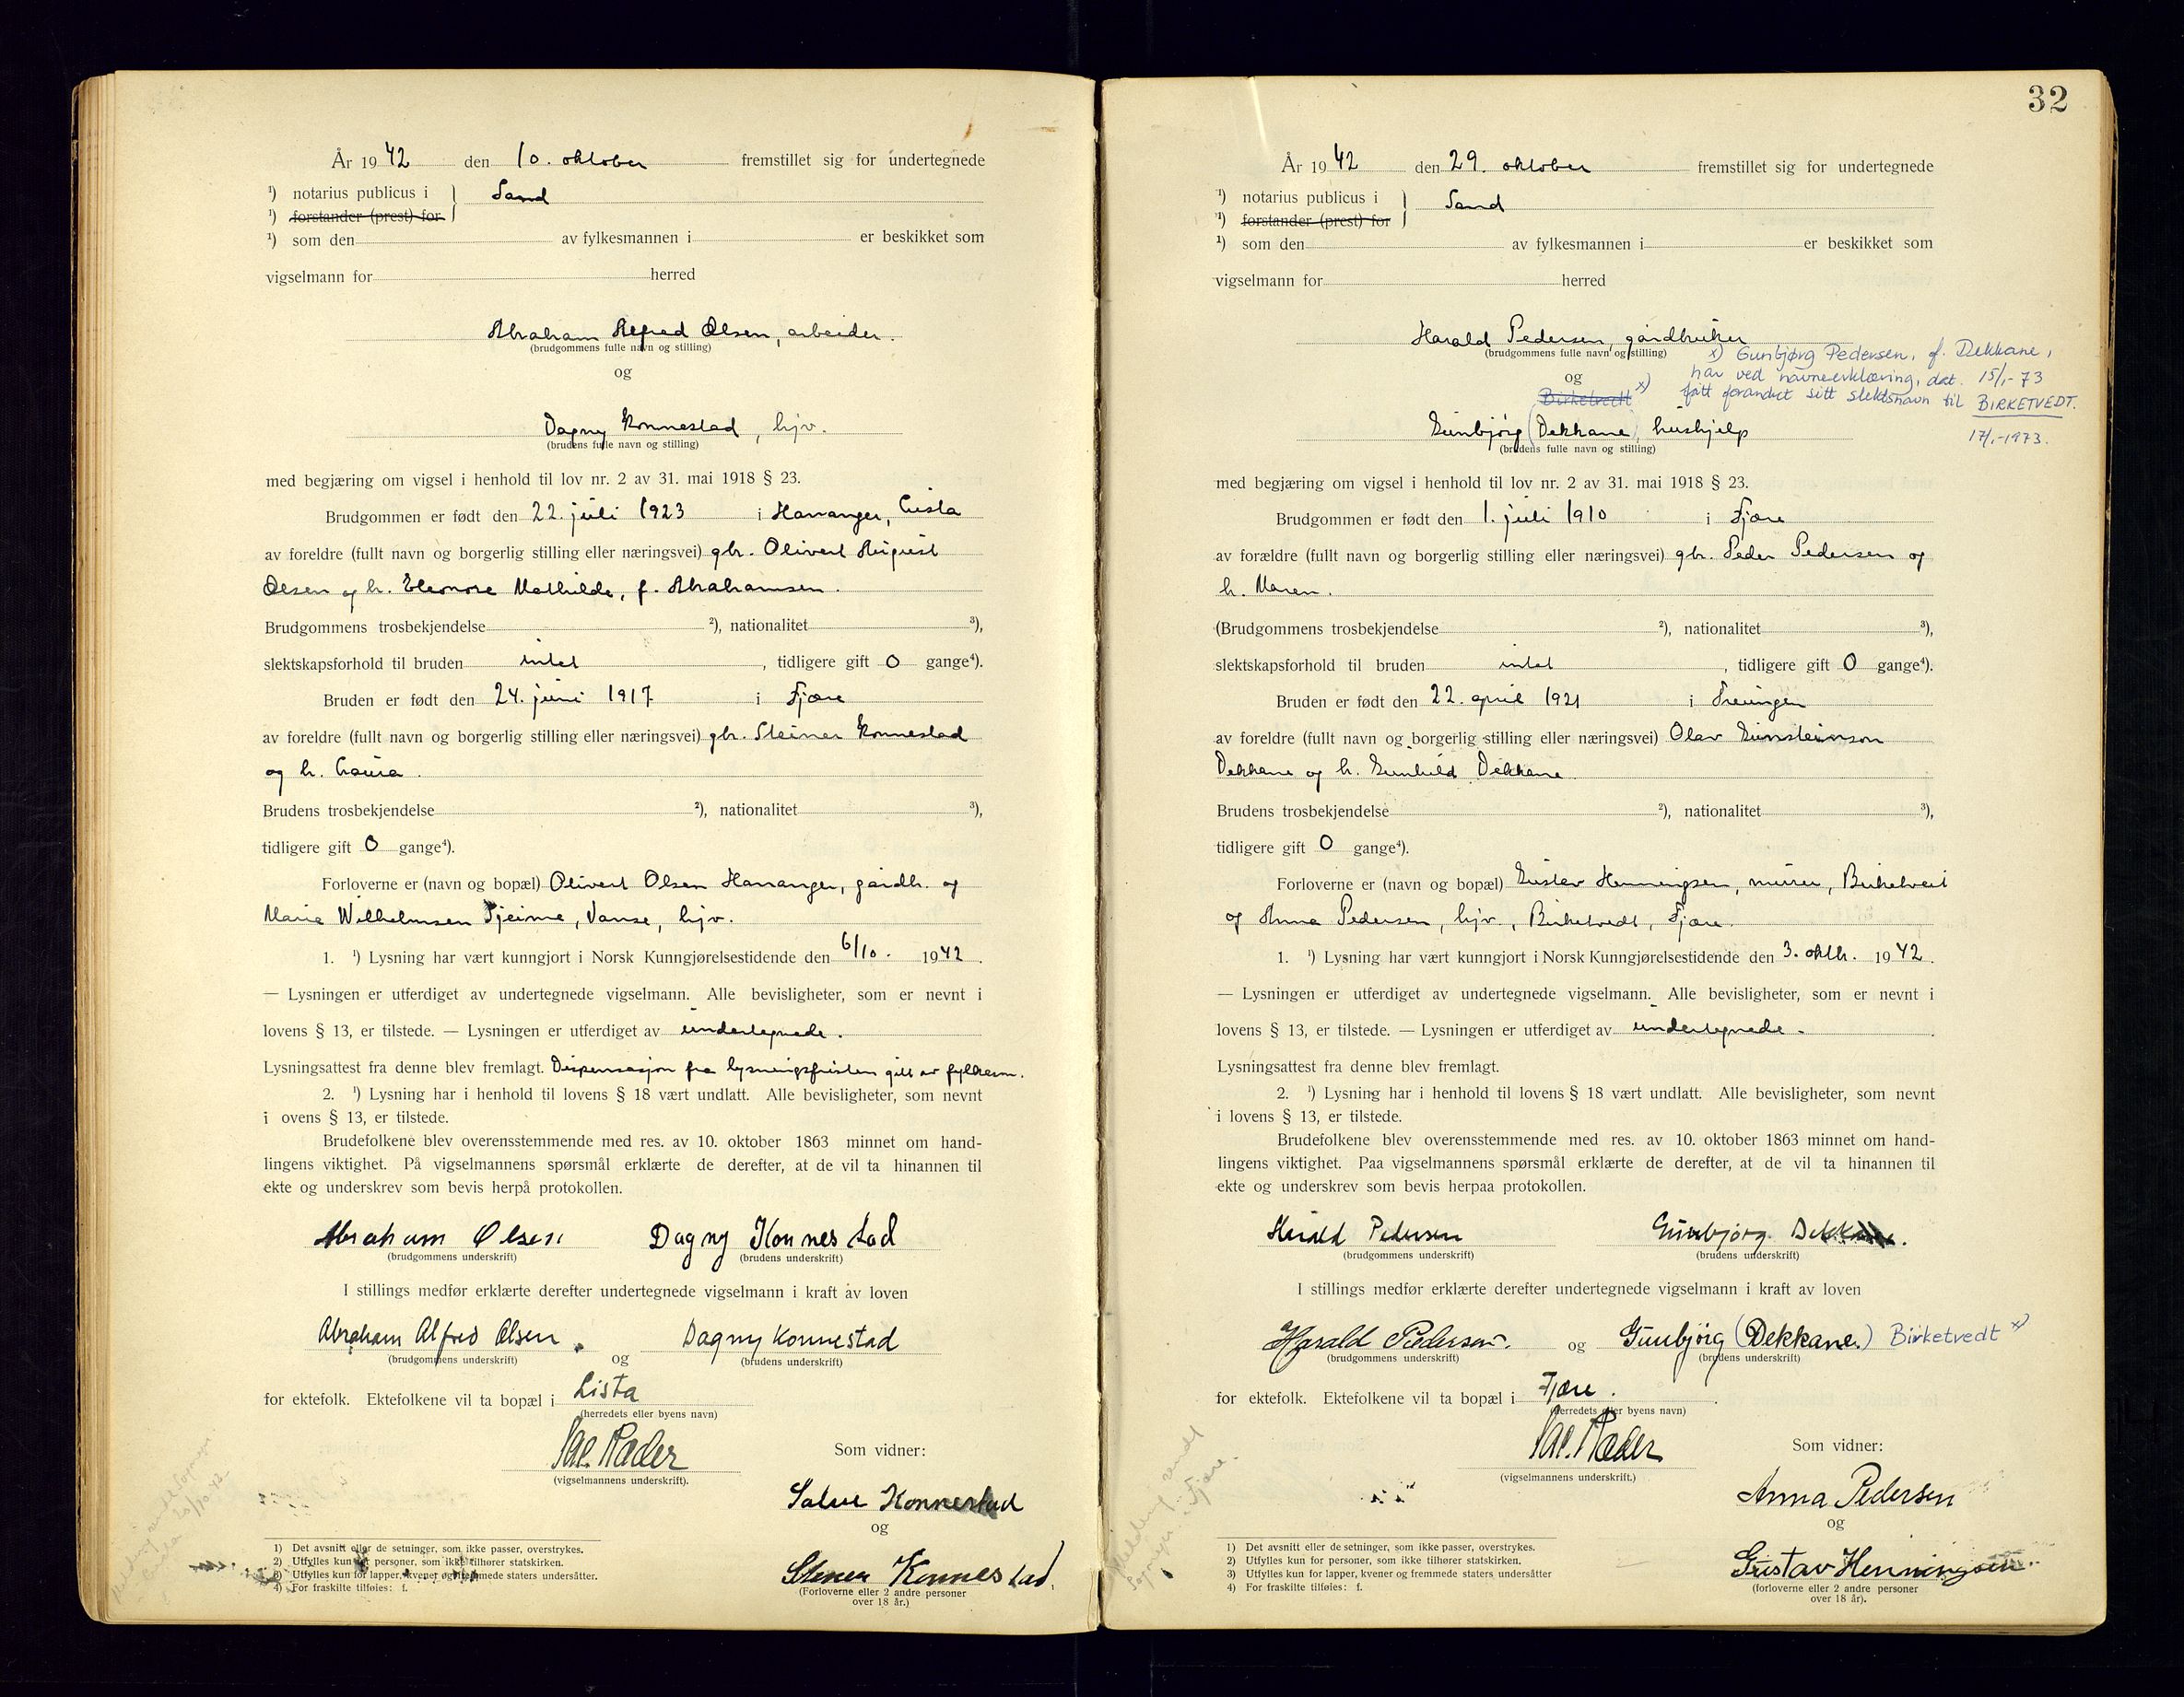 År 1942 den 10. oktober fremstillet sig for undertegnede
¹) notarius publicus i } Sand
¹) forstander (prest) for
¹) som den av fylkesmannen i er beskikket som
vigselmann for herred
Abraham Alfred Olsen, arbeider.
(brudgommens fulle navn og stilling)
og
Dagny Konnestad, hjv.
(brudens fulle navn og stilling)
med begjæring om vigsel i henhold til lov nr. 2 av 31. mai 1918 § 23.
Brudgommen er født den 22. juli 1923 i Hananger, Lista
av foreldre (fullt navn og borgerlig stilling eller næringsvei) gbr. Olivert August
Olsen og h. Eleonore Mathilde, f. Abrahamsen.
Brudgommens trosbekjendelse ²), nationalitet ³),
slektskapsforhold til bruden intet, tidligere gift 0 gange⁴).
Bruden er født den 24. juni 1917 i Fjære
av foreldre (fullt navn og borgerlig stilling eller næringsvei) gbr. Steiner Konnestad
og h. Laura.
Brudens trosbekjendelse ²), nationalitet ³),
tidligere gift 0 gange⁴).
Forloverne er (navn og bopæl) Olivert Olsen Hananger, gårdb. og
Maria Wilhelmsen Tjeime, Vanse, hjv.
1. ¹) Lysning har vært kunngjort i Norsk Kunngjørelsestidende den 6/10. 1942.
— Lysningen er utferdiget av undertegnede vigselmann. Alle bevisligheter, som er nevnt i
lovens § 13, er tilstede. — Lysningen er utferdiget av undertegnede.
Lysningsattest fra denne blev fremlagt. Dispensasjon fra lysningsfristen gitt av fylkesm.
2. ¹) Lysning har i henhold til lovens § 18 vært undlatt. Alle bevisligheter, som nevnt
i ovens § 13, er tilstede.
Brudefolkene blev overensstemmende med res. av 10. oktober 1863 minnet om hand-
lingens viktighet. På vigselmannens spørsmål erklærte de derefter, at de vil ta hinannen til
ekte og underskrev som bevis herpå protokollen.
Abraham Olsen Dagny Konnestad
(brudgommens underskrift) (brudens underskrift)
I stillings medfør erklærte derefter undertegnede vigselmann i kraft av loven
Abraham Alfred Olsen og Dagny Konnestad
(brudgommens underskrift) (brudens underskrift)
for ektefolk. Ektefolkene vil ta bopæl i Lista
(herredets eller byens navn)
Ræder
(vigselmannens underskrift).
Som vidner:
Salve Konnestad
og
Steiner Konnestad,
(Forloverne eller 2 andre personer
over 18 år.)
1) Det avsnitt eller de setninger, som ikke passer, overstrykes.
2) Utfylles kun for personer, som ikke tilhører statskirken.
3) Utfylles kun for lapper, kvener og fremmede staters undersåtter.
4) For fraskilte tilføies: f.
32
År 1942 den 29. oktober fremstillet sig for undertegnede
¹) notarius publicus i } Sand
¹) forstander (prest) for
¹) som den av fylkesmannen i er beskikket som
vigselmann for herred
Harald Pedersen, gårdbruker
(brudgommens fulle navn og stilling)
x) Gunbjørg Pedersen, f. Dekkane,
har ved navneerklæring, dat. 15/1-73
fått forandret sitt slektsnavn til BIRKETVEDT.
17/1-1973.
og
Birketvedt x)
Gunbjörg (Dekkane), hushjelp
(brudens fulle navn og stilling)
med begjæring om vigsel i henhold til lov nr. 2 av 31. mai 1918 § 23.
Brudgommen er født den 1. juli 1910 i Fjære
av forældre (fullt navn og borgerlig stilling eller næringsvei) gbr. Peder Pedersen og
h. Maren.
(Brudgommens trosbekjendelse ²), nationalitet ³),
slektskapsforhold til bruden intet, tidligere gift 0 gange⁴).
Bruden er født den 22. april 1921 i Treungen
av foreldre (fullt navn og borgerlig stilling eller næringsvei) Olav Gunsteinson
Dekkane og h. Gunhild Dekkane.
Brudens trosbekjendelse ²), nationalitet ³),
tidligere gift 0 gange⁴).
Forloverne er (navn og bopæl) Gustav Henningsen, murer, Birketveit
og Anna Pedersen, hjv., Birketvedt, Fjære.
1. ¹) Lysning har vært kunngjort i Norsk Kunngjørelsestidende den 3. oktb. 1942.
— Lysningen er utferdiget av undertegnede vigselmann. Alle bevisligheter, som er nevnt i
lovens § 13, er tilstede. — Lysningen er utferdiget av undertegnede.
Lysningsattest fra denne blev fremlagt.
2. ¹) Lysning har i henhold til lovens § 18 vært undlatt. Alle bevisligheter, som nevnt
i lovens § 13, er tilstede.
Brudefolkene blev overensstemmende med res. av 10. oktober 1863 minnet om hand-
lingens viktighet. Paa vigselmannens spørsmål erklærte de derefter, at de vil ta hinannen til
ekte og underskrev som bevis herpaa protokollen.
Harald Pedersen Gunbjörg Dekkane.
(brudgommens underskrift) (brudens underskrift)
I stillings medfør erklærte derefter undertegnede vigselmann i kraft av loven
Harald Pedersen. og Gunbjörg (Dekkane.) Birketvedt x)
(brudgommens underskrift) (brudens underskrift)
for ektefolk. Ektefolkene vil ta bopæl i Fjære.
(herredets eller byens navn)
Ræder
(vigselmannens underskrift.)
Som vidner:
Anna Pedersen
og
Gustav Henningsen.
(forloverne eller 2 andre personer
over 18 år).
1) Det avsnitt eller de setninger, som ikke passer, overstrykes.
2) Utfylles kun for personer, som ikke tilhører statskirken.
3) Utfylles kun for lapper, kvener og fremmede staters undersåtter
4) For fraskilte tilføies: f.